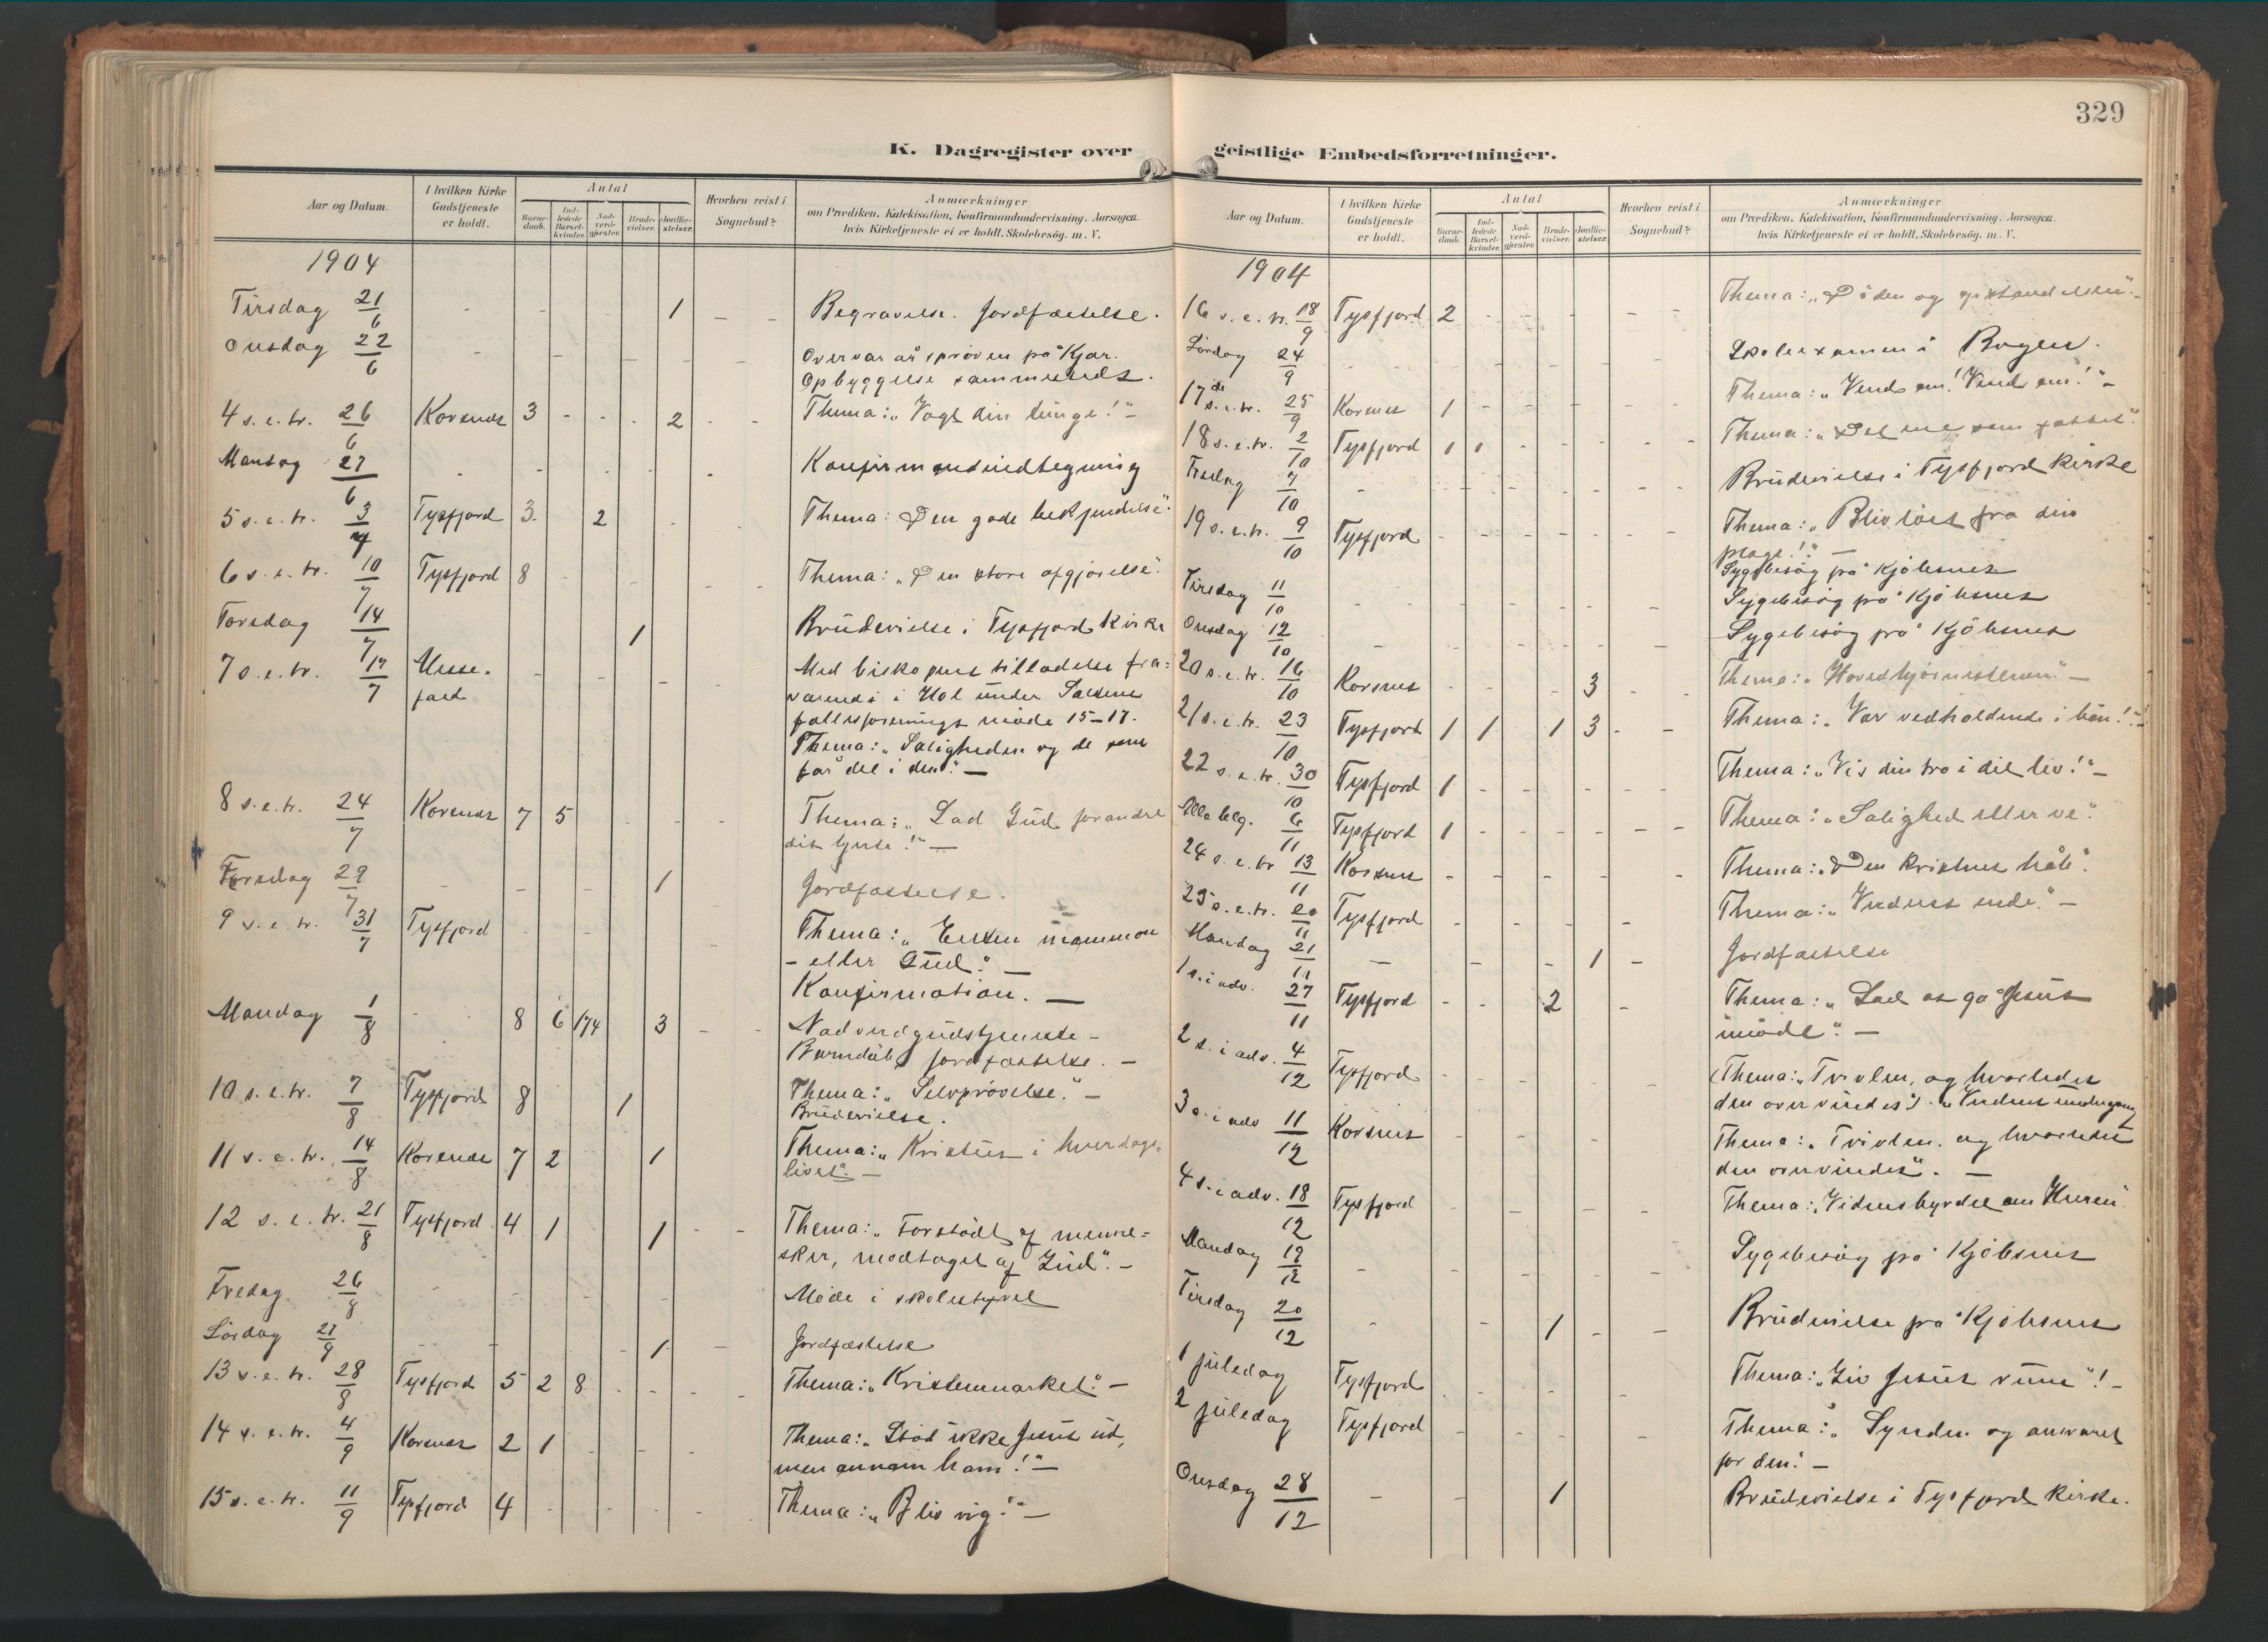 329
K. Dagregister over geistlige Embedsforretninger.
Aar og Datum.
I hvilken Kirke Gudstjeneste er holdt.
Antal
Barnedaab.
Indledede Barselkvinder.
Nadverdgjester.
Brudevielser.
Jordfæstelser.
Hvorhen reist i Sognebud?
Anmærkninger
om Prædiken, Katekisation, Konfirmandundervisning. Aarsagen
hvis Kirketjeneste ei er holdt. Skolebesög. m. V.
1904
Tirsdag 21/6 - - 1 - - Begravelse. Jordfæstelse.
Onsdag 22/6 - - - - - Overvar årsprøven på Kjær.
Opbyggelse sammesteds.
4 s. e. tr. 26/6 Korsnes 3 - - - 2 - - Thema: „Vogt din tunge!" -
Mandag 27/6 - - - - Konfirmandindtegning
5 s. e. tr. 3/7 Tysfjord 3 2 - - Thema: Den gode bekjendelse."
6 s. e. tr. 10/7 Tysfjord 8 - - - - Thema: „Den store afgjørelse".
Torsdag 14/7 1 Brudevielse i Tysfjord kirke
7 s. e. tr. 17/7 Messefald - - - - Med biskopens tilladelse fra=
værende i Hol under
møde 15-17.
Thema: „Saligheden og de som
får del i den". -
8 s. e. tr. 24/7 Korsnes 7 5 - - - Thema: „Lad Gud forandre
dit hjerte!" -
29/7 - - - 1 Jordfæstelse.
9 s. e. tr. 31/7 Tysfjord - - - Thema: „Enten mammon
- eller Gud". -
Konfirmation. -
Mandag 1/8 - - 8 6 174 3 - - Nadverdgudstjeneste -
Barnedåb, jordfæstelse. -
10 s. e. tr. 7/8 Tysfjord 8 1 Thema: „Selvprøvelse". -
Brudevielse.
11 s. e. tr. 14/8 Korsnes 7 2 1 Thema: „Kristus i hverdags-
livet". -
12 s. e. tr. 21/8 Tysfjord 4 1 1 - - Thema: „Forstødt af menne=
sker, modtaget af Gud". -
Fredag 26/8 - - - - Møde i skolestyret
Lørdag 27/8 - - - 1 - Jordfæstelse
13 s. e. tr. 28/8 Tysfjord 5 2 8 - - - Thema: „Kristenmærket". -
14 s. e. tr. 4/9 Korsnes 2 1 - - - Thema: „Stød ikke Jesus ud,
men annam ham!" -
15 s. e. tr. 11/9 Tysfjord 4 - - - - Thema: „Bliv " -
Aar og Datum.
I hvilken Kirke Gudstjeneste er holdt.
Antal
Barnedaab.
Indledede Barselkvinder.
Nadverdgjester.
Brudevielser.
Jordfæstelser.
Hvorhen reist i Sognebud?
Anmærkninger
om Prædiken, Katekisation, Konfirmandundervisning. Aarsagen
hvis Kirketjeneste ei er holdt. Skolebesög. m. V.
1904
16 s. e. tr. 18/9 Tysfjord 2 - - - - - Thema: „Døden og opstandelsen". -
Lørdag 24/9 - - - - - - Skoleexamen i Bogen.
17de s. e. tr. 25/9 Korsnes 1 - - - - - Thema: „Vend om! Vend om!" -
18 s. e. tr. 2/10 Tysfjord 1 1 - - - - Thema: „Det ene som "
Fredag 7/10 - - - - - - Brudevielse i Tysfjord kirke
19 s. e. tr. 9/10 Tysfjord - - - - - - Thema: „Bliv løst fra din
plage!" -
Sygebesøg på Kjøbsnes
Tirsdag 11/10 - - - - - - Sygebesøg på Kjøbsnes
Onsdag 12/10 - - - - - Sygebesøg på Kjøbsnes
20 s. e. tr. 16/10 Korsnes 3 - - Thema: „Hovedhjørnestenen". -
21 s. e. tr. 23/10 Tysfjord 1 1 1 3 - - Thema: „Vær vedholdende i bøn!" -
22 s. e. tr. 30/10 Tysfjord 1 - - - - - Thema: „Vis din tro i dit liv!" -
Alle helg. 6/11 Tysfjord 1 - - - - - Thema: „Salighed eller ve".
24 s. e. tr. 13/11 Korsnes - - - - - - Thema: „Den kristnes håb".
25 s. e. tr. 20/11 Tysfjord - - - - Thema: „Verdens ende". -
Mandag 21/11 - - - 1 - Jordfæstelse
1 s. i adv. 27/11 Tysfjord - - 2 - Thema: „Lad os gå Jesus
imøde". -
2 s. i adv. 4/12 Tysfjord - - - - (Thema: „Tvivlen, og hvorledes
den overvindes") „Verdens undergang
3 s. i adv. 11/12 Korsnes - - - - Thema: „Tvivlen, og hvorledes
den overvindes". -
4 s. i adv. 18/12 Tysfjord - - - - Thema: „Vidnesbyrdet om Herren".
Mandag 19/12 - - - - Sygebesøg på Kjøbsnes
Tirsdag 20/12 - - 1 - - Brudevielse på Kjøbsnes
1 juledag Tysfjord - - - - Thema: „Giv Jesus rum"! -
2 juledag Tysfjord - - - - Thema: „Synden og ansvaret
for den". -
Onsdag 28/12 - - - 1 - - Brudevielse i Tysfjord kirke.